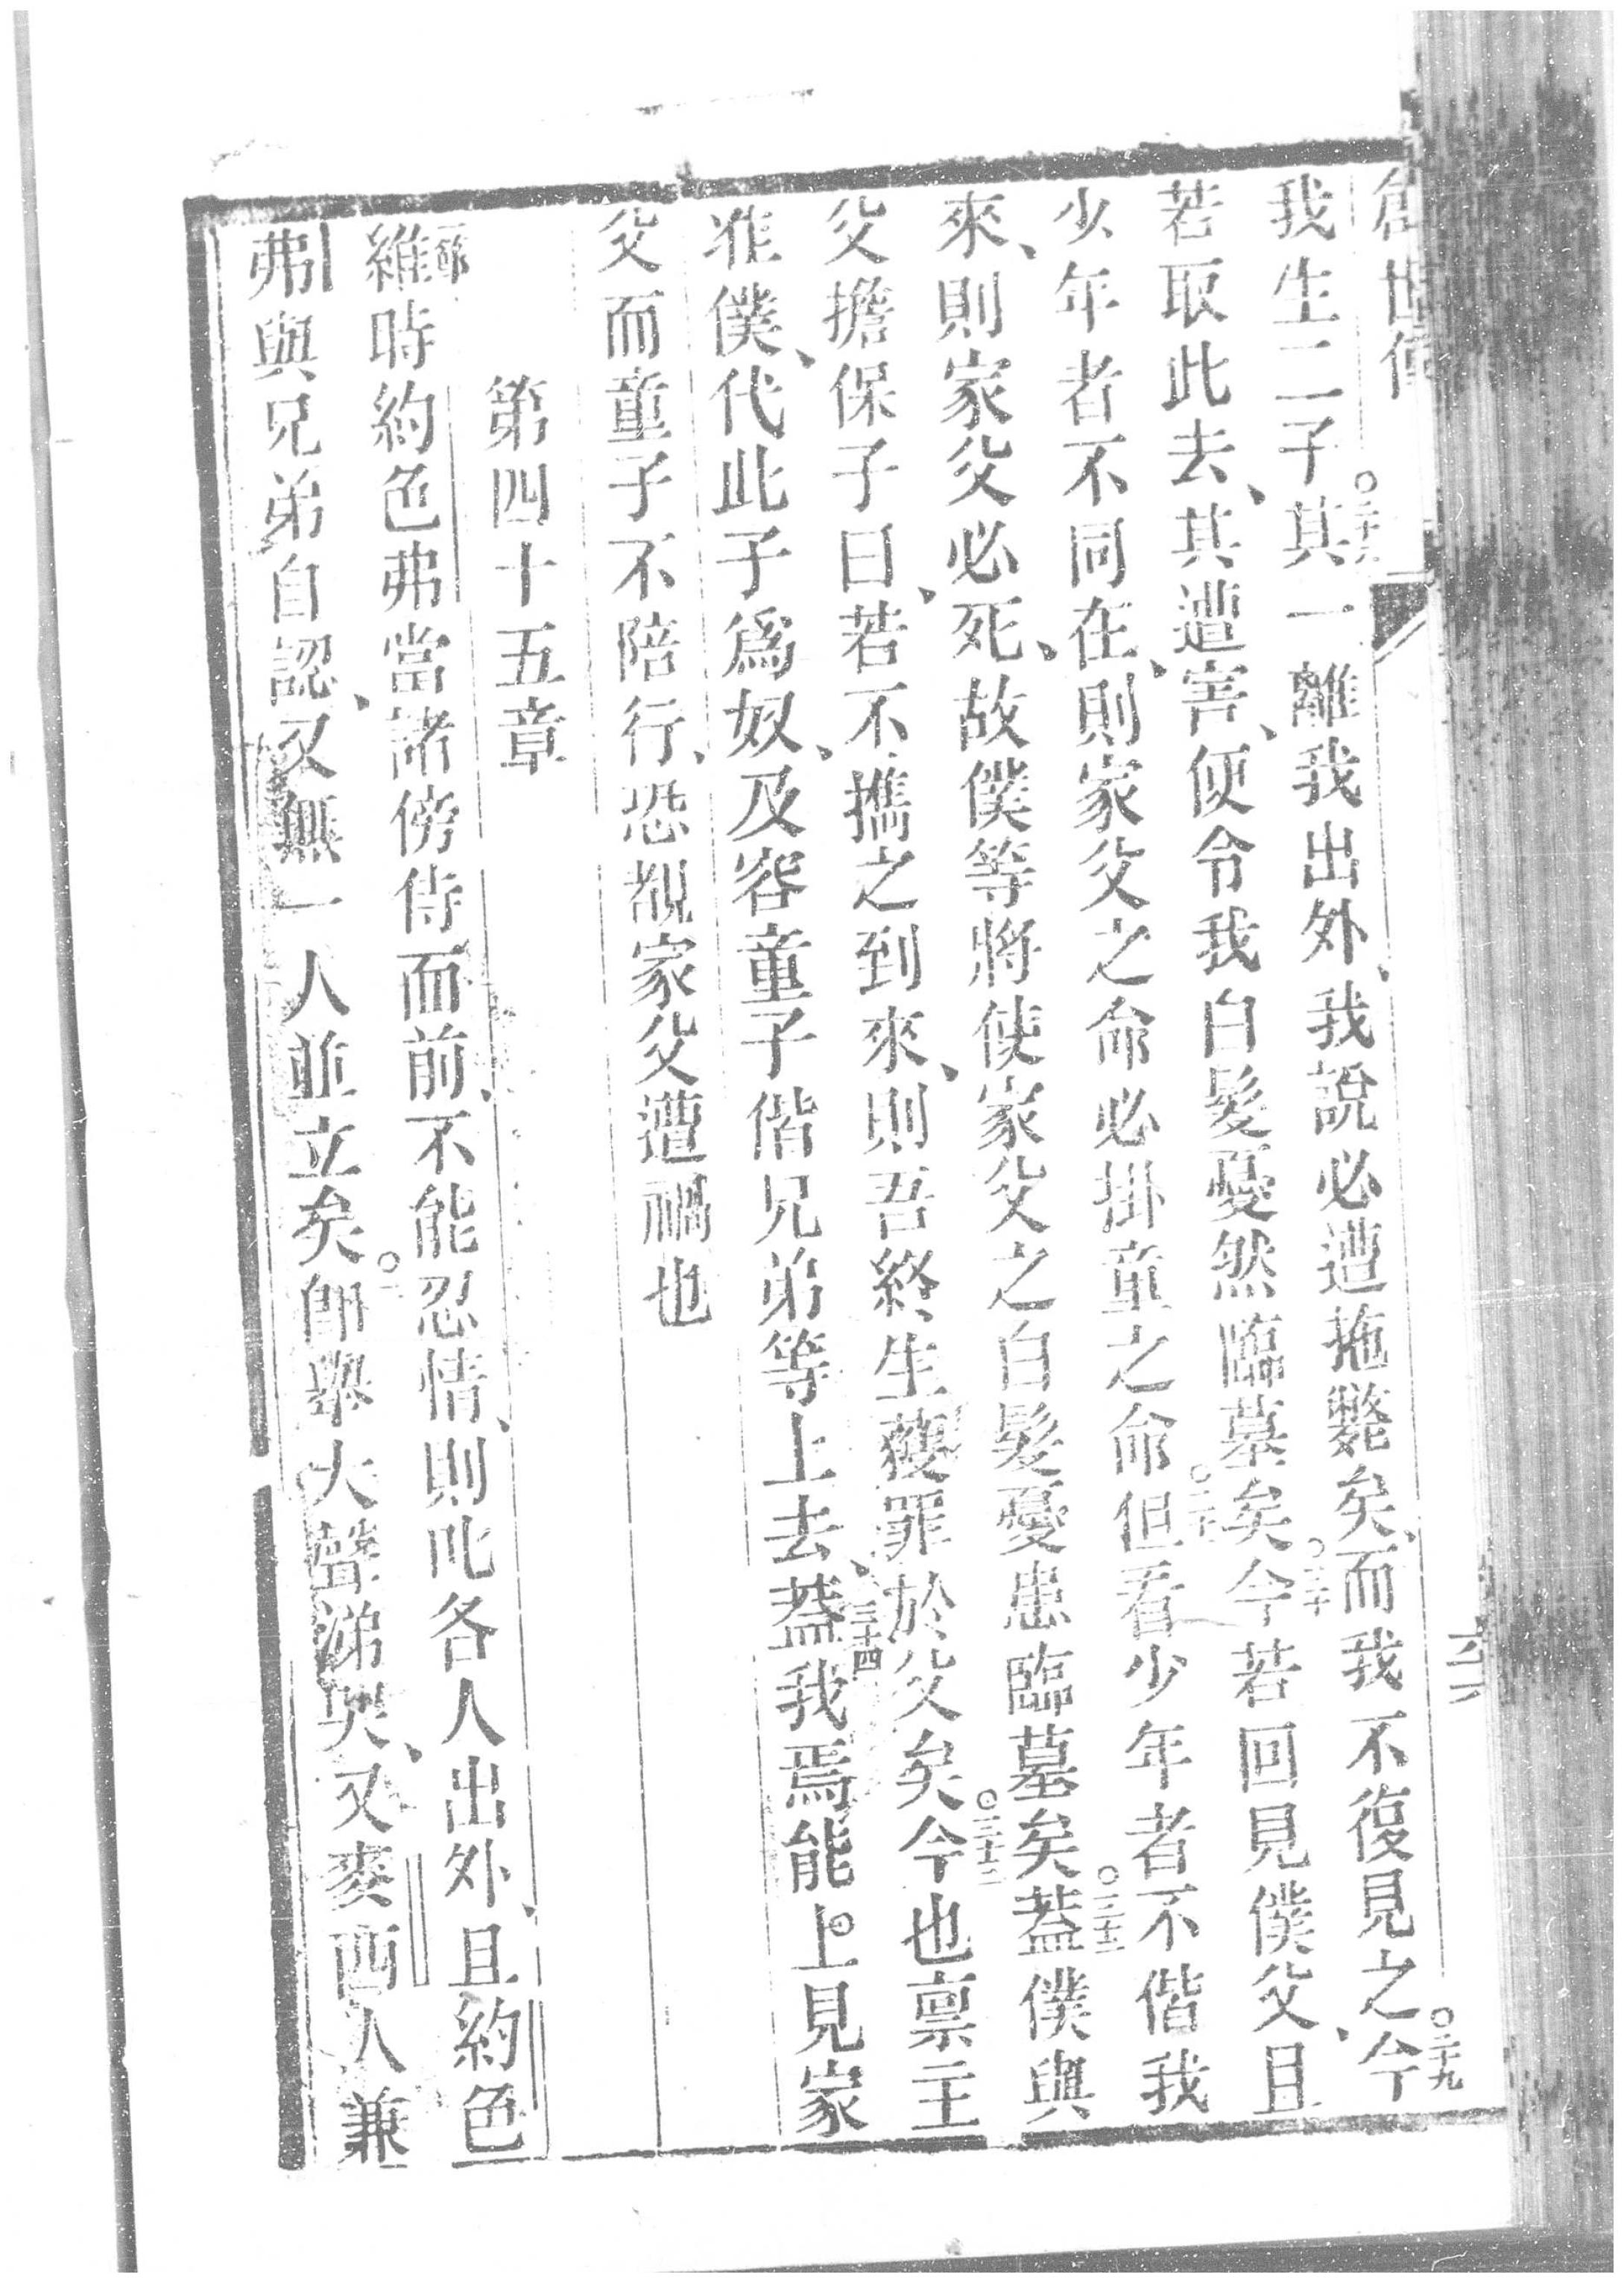 創世傳
六十二
我生二子○二十八其一離我出外、我說必遭拖斃矣、而我不復見之○二十九今
若取此去、其遭害、便令我白髮憂然臨墓矣○三十今若回見僕父、且
少年者不同在、則家父之命必掛童之命○三十一但看少年者不偕我
來、則家父必死、故僕等將使家父之白髮憂患臨墓矣○三十二蓋僕與
父擔保子曰、若不攜之到來、則吾終生獲罪於父矣○三十三今也禀主
准僕、代此子爲奴、及容童子偕兄弟等上去、三十四蓋我焉能上見家
父而童子不陪行、恐覩家父遭禍也
第四十五章
一節維時約色弗當諸傍侍面前、不能忍情、則叱各人出外、且約色
弗與兄弟自認、又無一人並立矣○二即舉大聲涕哭、又麥西人兼